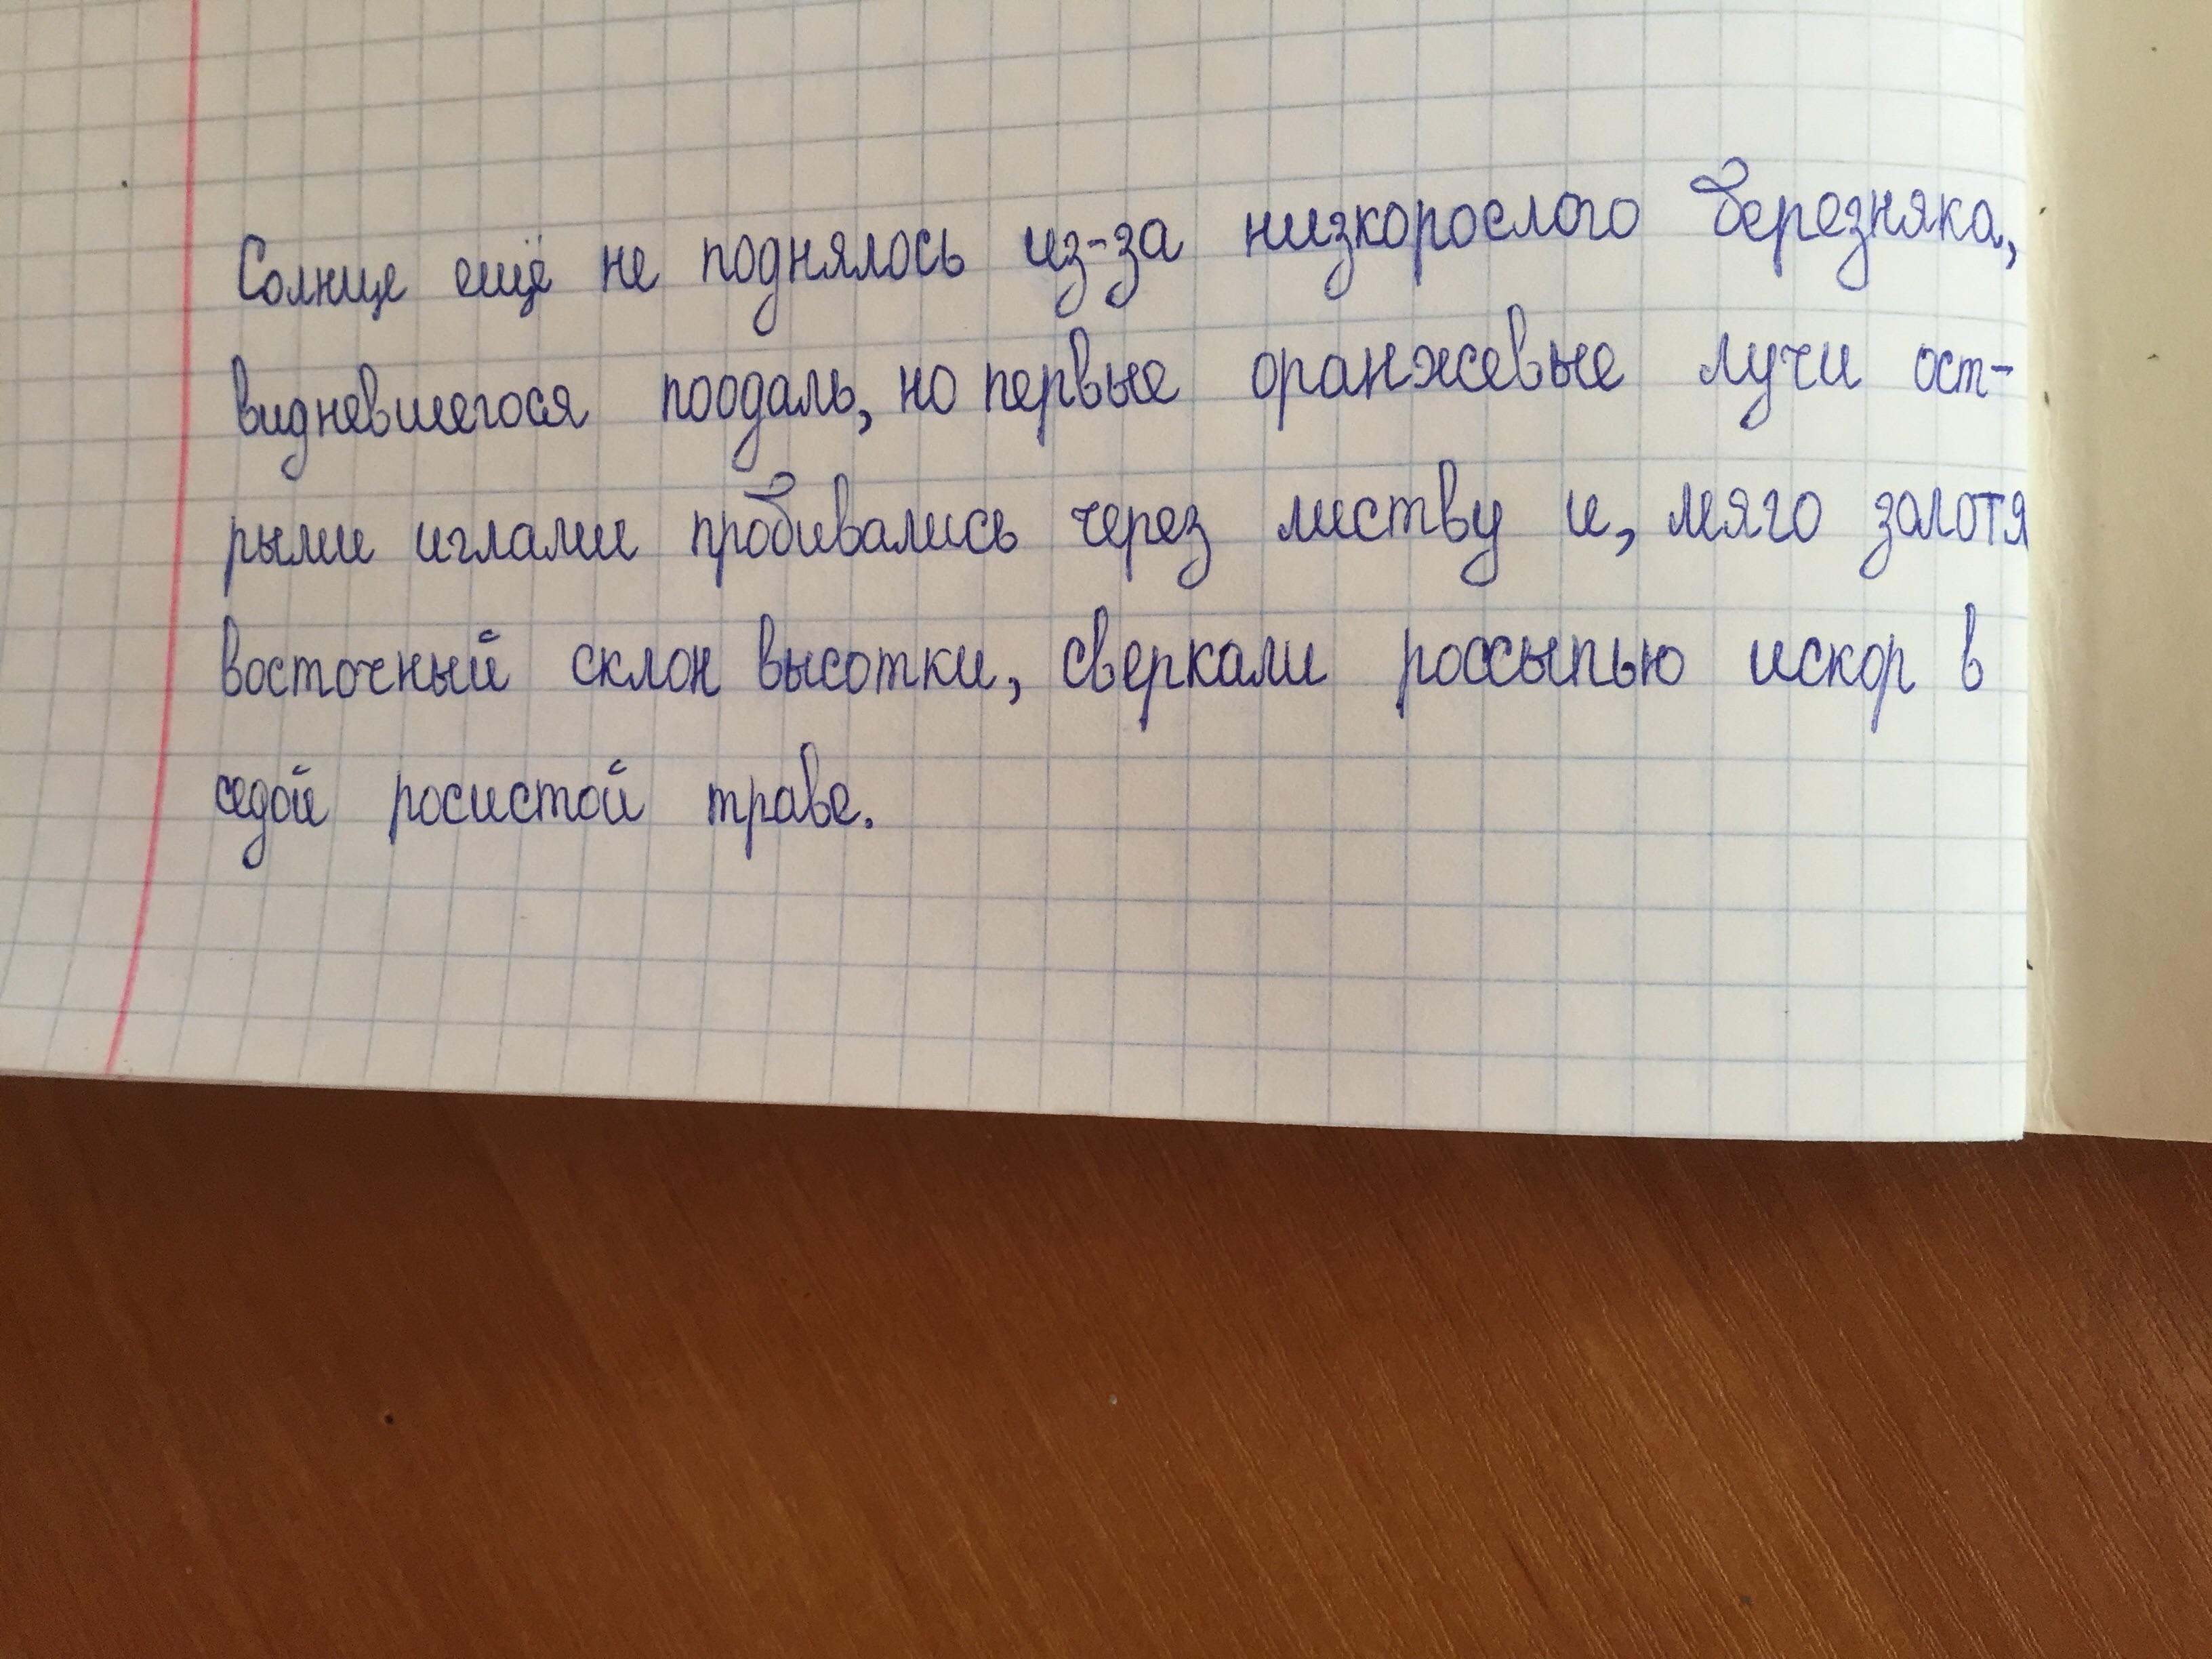 Солнце ещё не поднялось из-за низкорослого березняка,
видневшегося поодаль, но первые оранжевые лучи ост-
рыми иглами пробивались через листву и, мяго золотя
восточный склон высотки, сверкали россыпью искор в
седой росистой траве.